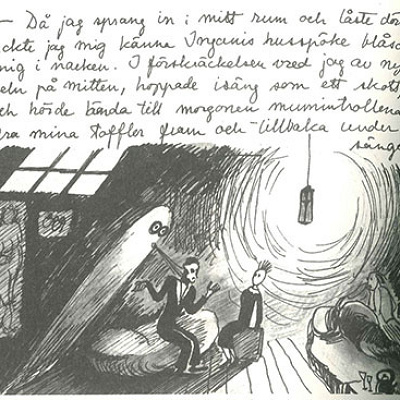 – Då jag sprang in i mitt rum och låste dör
jag mig känna Ingenis husspöke blås
mig i nacken. I förskräckelsen vred jag av ny
eln på mitten, hoppade i säng som ett skott,
ch hörde ända till morgonen mumintrollena
ra mina tofflor fram och tillbaka under
sänge